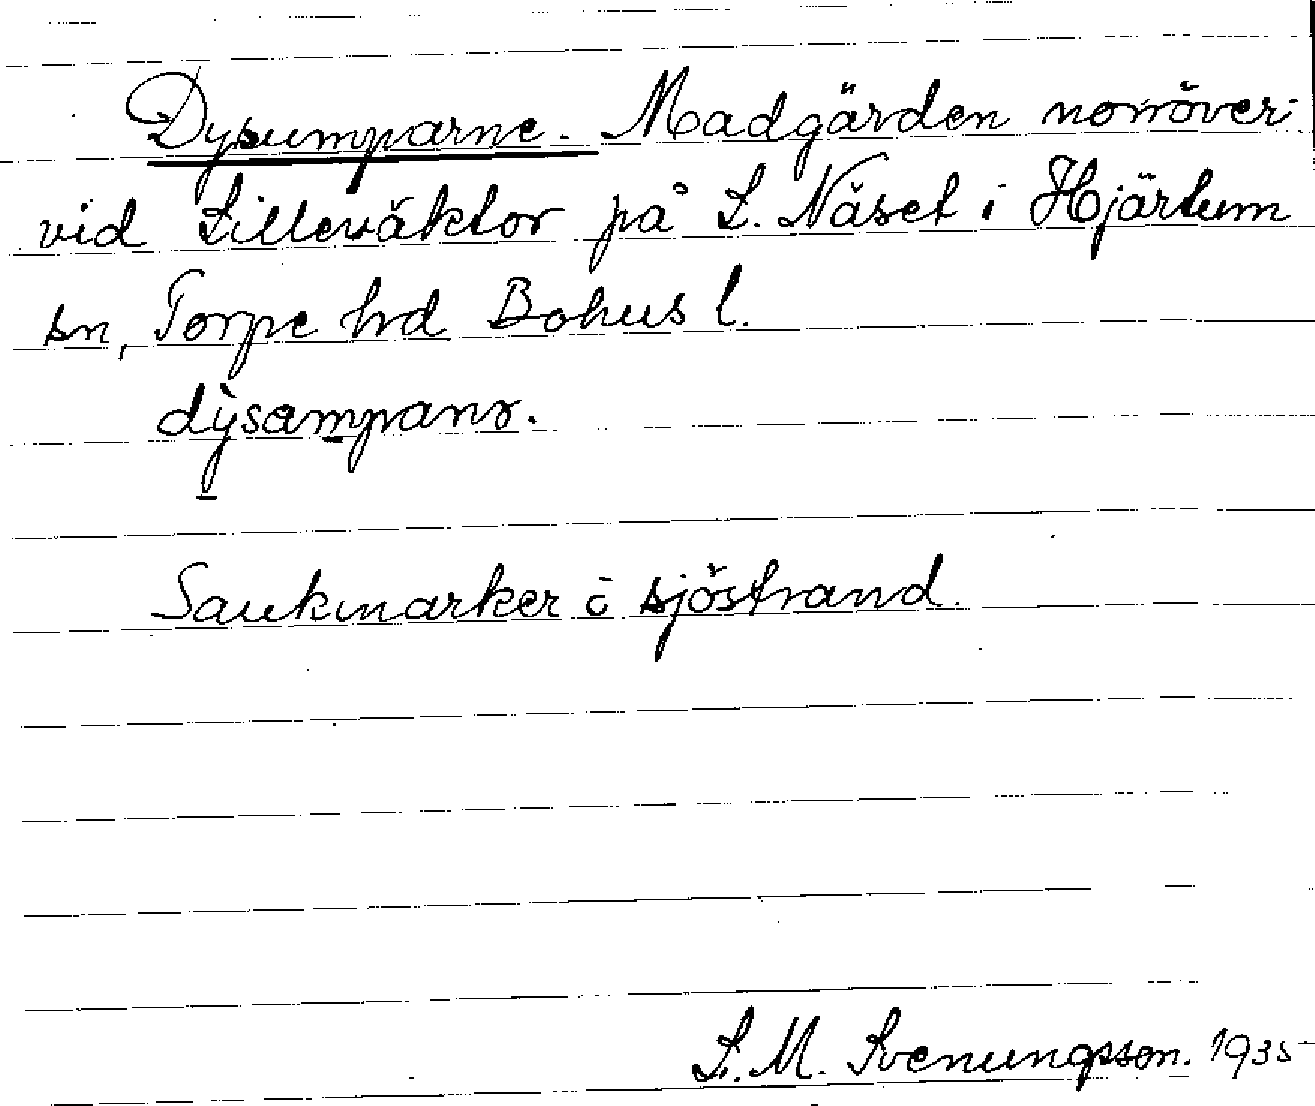 Dysumparne. Madgärden norröver
vid Lilleväktor på L. Näset i Hjärtum
sn, Torpe hrd Bohus l.
dỳsampanɤ.
Sankmarker i sjöstrand.
S. M. Svenungsson. 1935